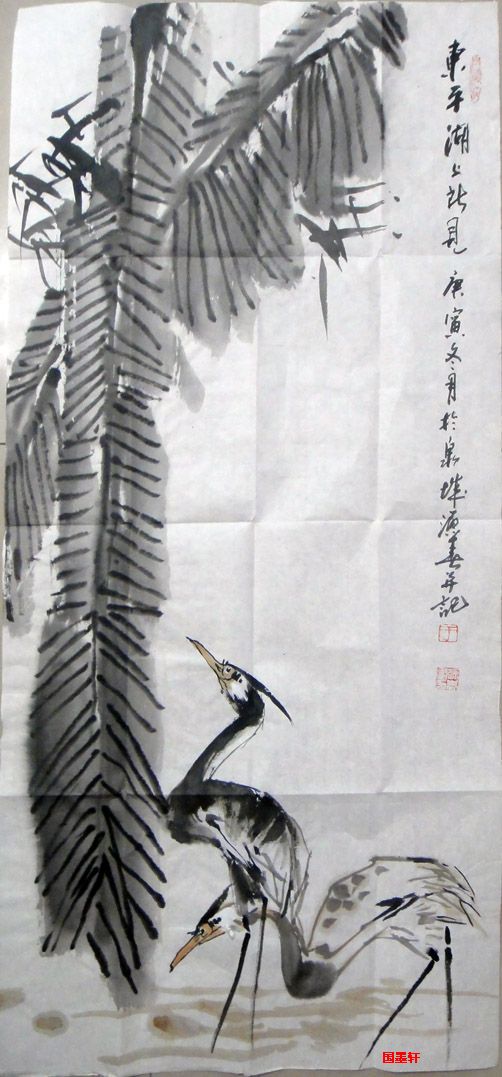 東平湖上所見 庚寅冬月於泉城源春并記
国墨轩